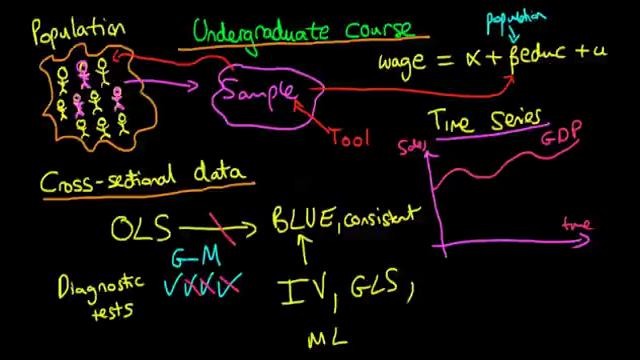 Population
Undergraduate course
population
wage = α + βeduc + u
Sample
Tool
Time Series
Sales
GDP
time
Cross-sectional data
OLS
BLUE, consistent
G-M
Diagnostic
tests
IV, GLS,
ML